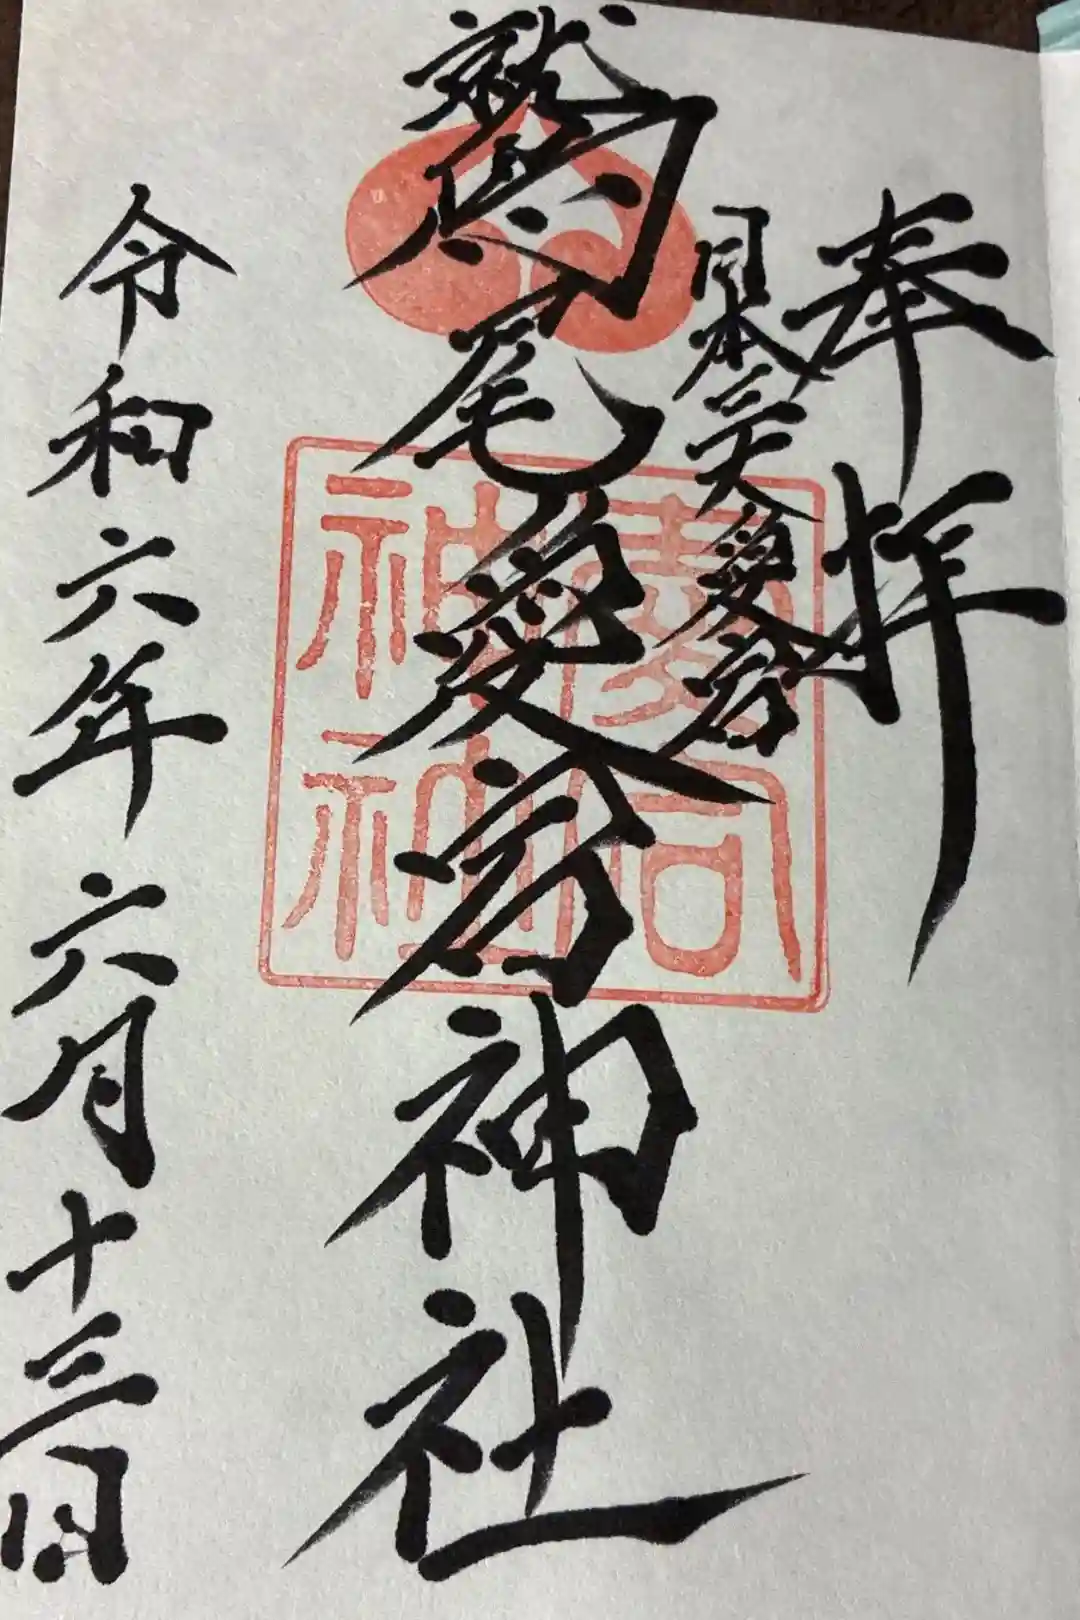 奉拝
日本三大愛宕
鷲尾愛宕神社
愛宕神社
令和六年六月十三日